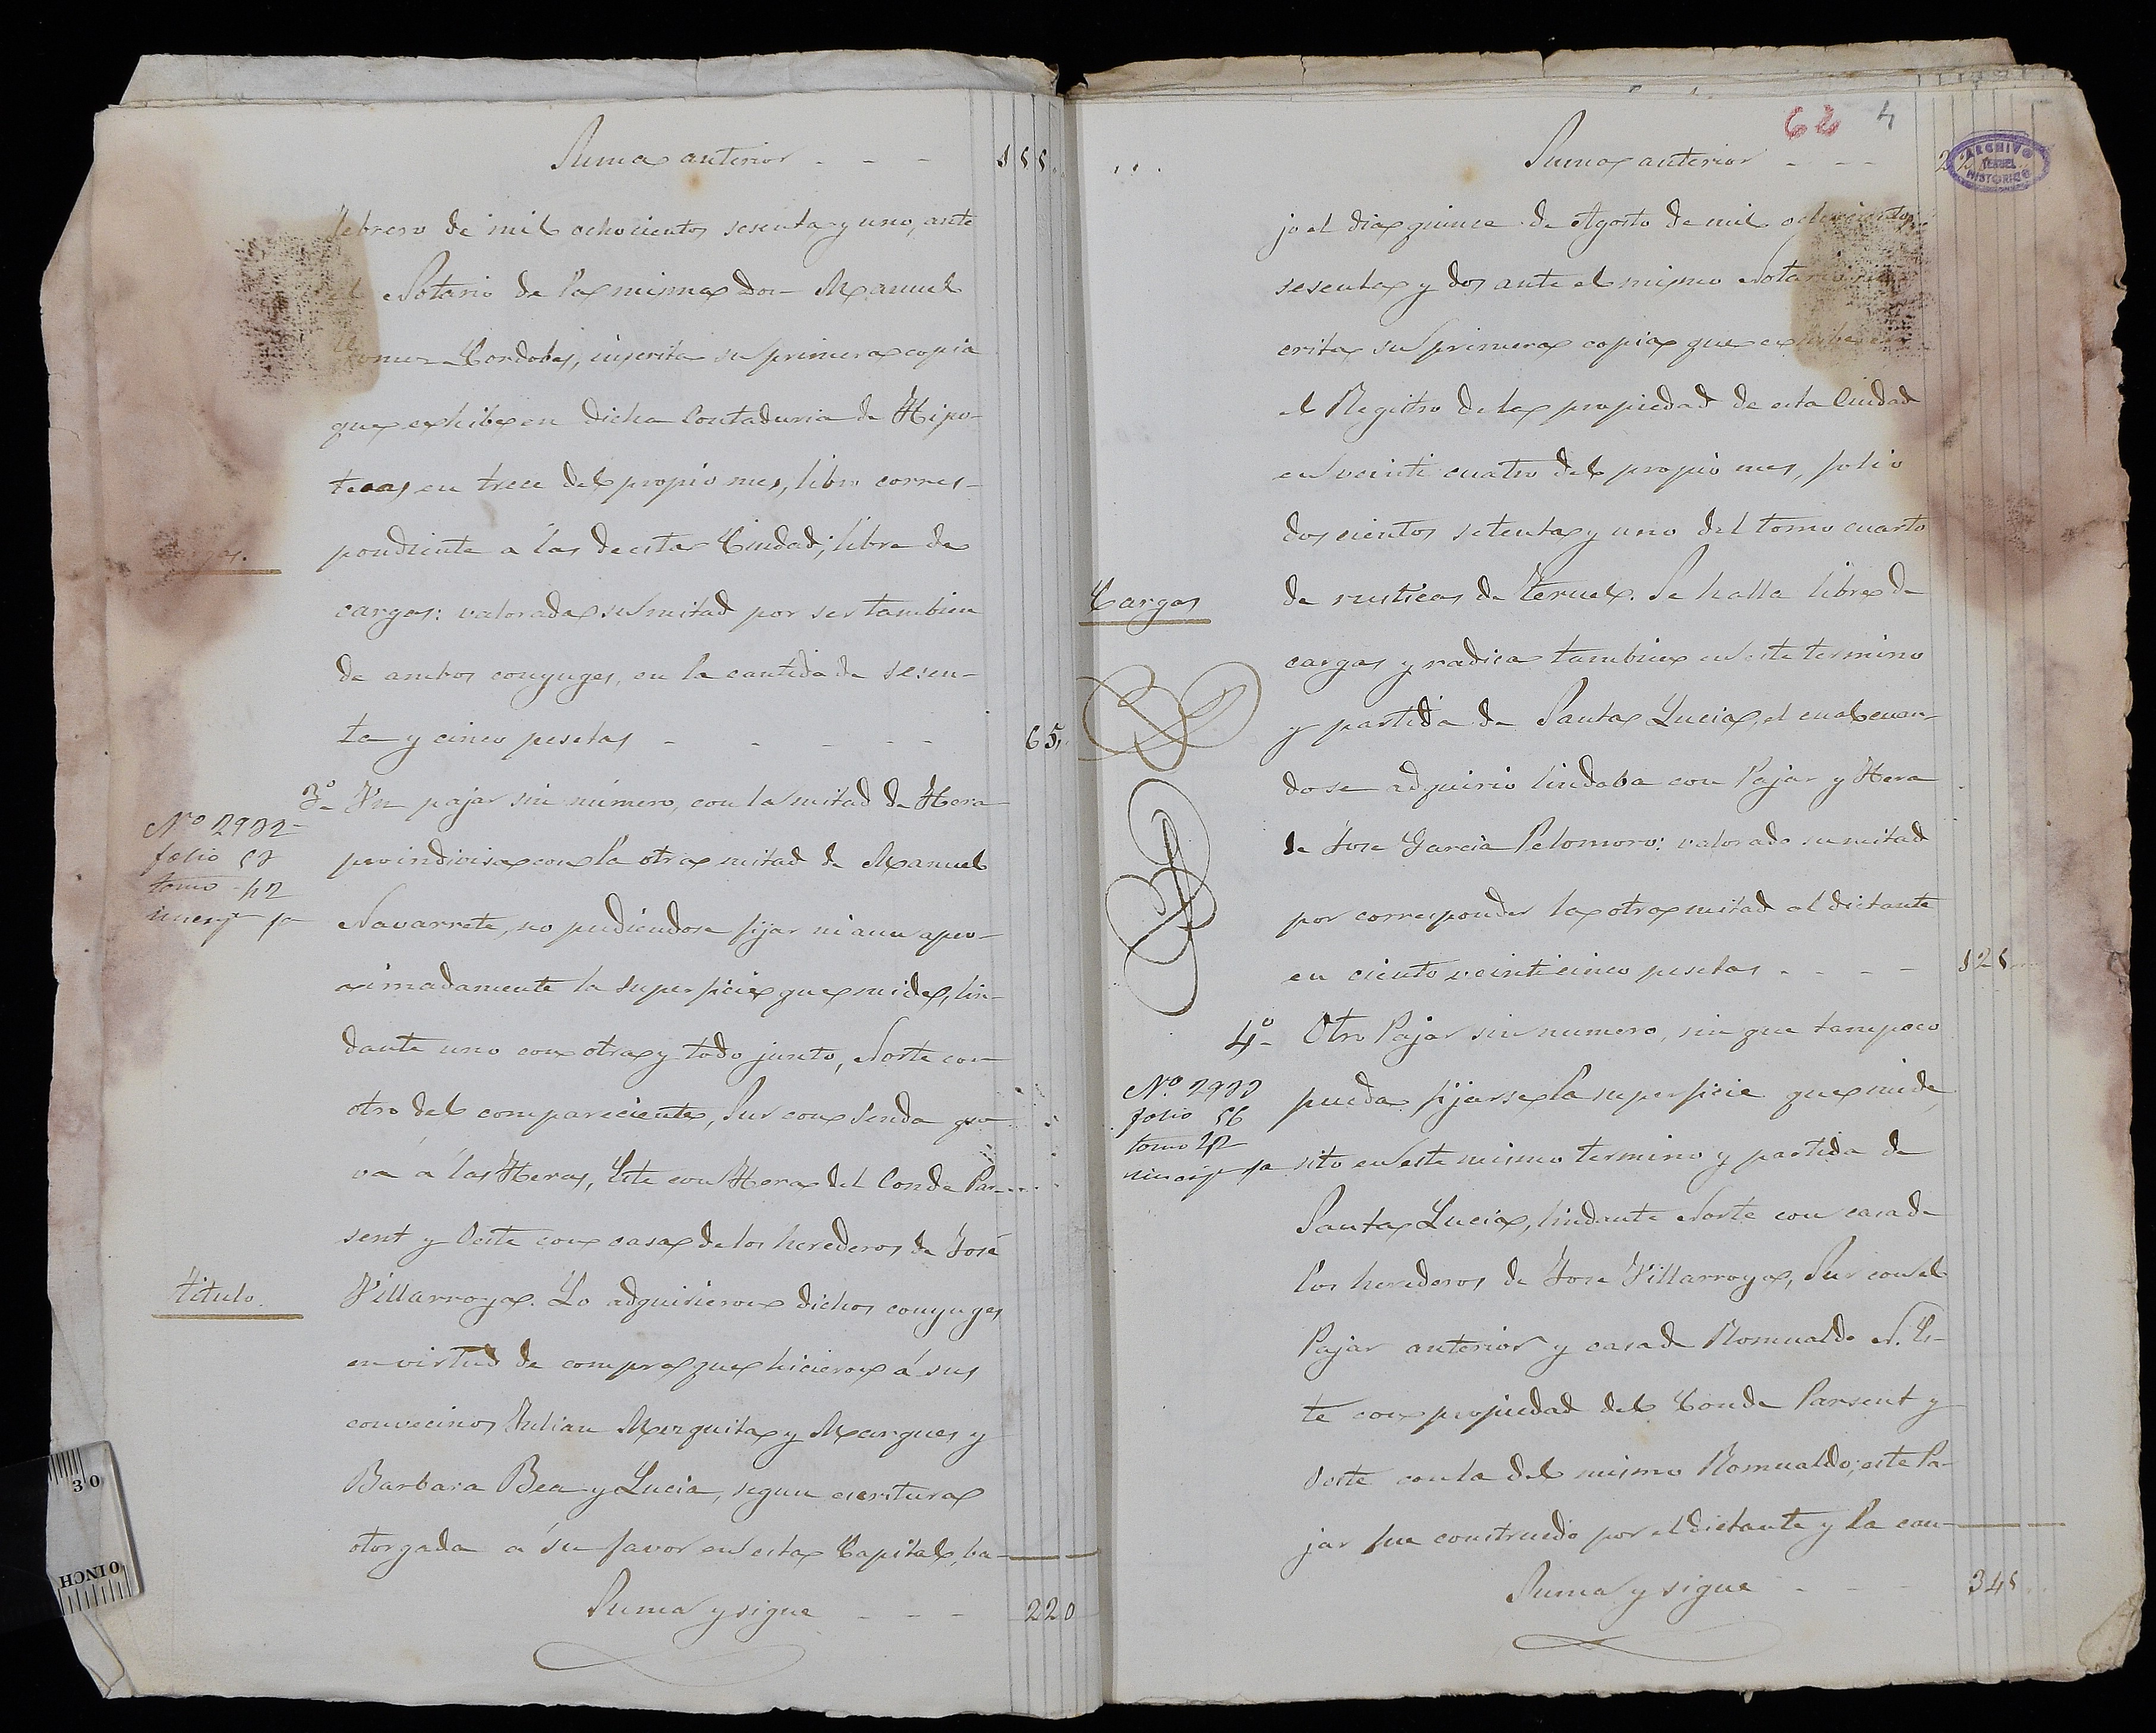 Suma anterior - - - 155
Febrero de mil ochocientos sesenta y uno, ante
el Notario de la misma Don Manuel
Gomez Cordobes, inscrita su primera copia
que exhibe en dicha Contaduria de Hipo-
tecas en trece del propio mes, libro corres-
pondiente á las de esta Ciudad; libre de
Cargas.
cargas: valorada su mitad por ser tambien
de ambos conyuges, en la cantida de sesen-
ta y cinco pesetas - - - - - 65
3º Un pajar sin número, con la mitad de Hera
Nº 2922
folio 53
tomo 42
proindivisa con la otra mitad de Manuel
Navarrete, no pudiendose fijar ni aun apro-
ximadamente la superficie que mide, lin-
dante uno con otra y todo junto, Norte con
otro del compareciente, Sur con senda que
va á las Heras, Este con Hera del Conde Par-
sent y Oeste con casa de los herederos de José
titulo.
Villarroya. Lo adquirieron dichos conyuges
en virtud de compra que hicieron á sus
convecinos Julian Mezquita y Marques y
Barbara Bea y Lucia, segun escritura
otorgada á su favor en esta Capital, ba-
Suma y sigue - - - 220
62 4
Suma anterior - - - 2
ARCHIVO
TERUEL
HISTORICO
jo el dia quince de Agosto de mil ochocientos
sesenta y dos ante el mismo Notario ins-
crita su primera copia que exhibe en
el Registro de la propiedad de esta Ciudad
en veinti cuatro del propio mes, folio
doscientos setenta y uno del tomo cuarto
Cargas
de rusticas de Teruel. Se halla libre de
cargas y radica tambien en este termino
y partida de Santa Lucia, el cual cuan-
do se adquirio lindaba con Pajar y Hera
de Jose Garcia Pelomoro: valorado su mitad
por corresponder la otra mitad al dictante
en ciento veinticinco pesetas - - - - 125
4º Otro Pajar sin numero, sin que tampoco
Nº 2923
folio 56
tomo 42
pueda fijarse la superficie que mide,
sito en este mismo termino y partida de
Santa Lucia, lindante Norte con casa de
los herederos de Jose Villarroya, Sur con el
Pajar anterior y casa de Romualdo N. Es-
te con propiedad del Conde Parsent y
Oeste con la del mismo Romualdo; este Pa-
jar fue construido por el dictante y la con-
Suma y sigue - - - 345
30
0 INCH